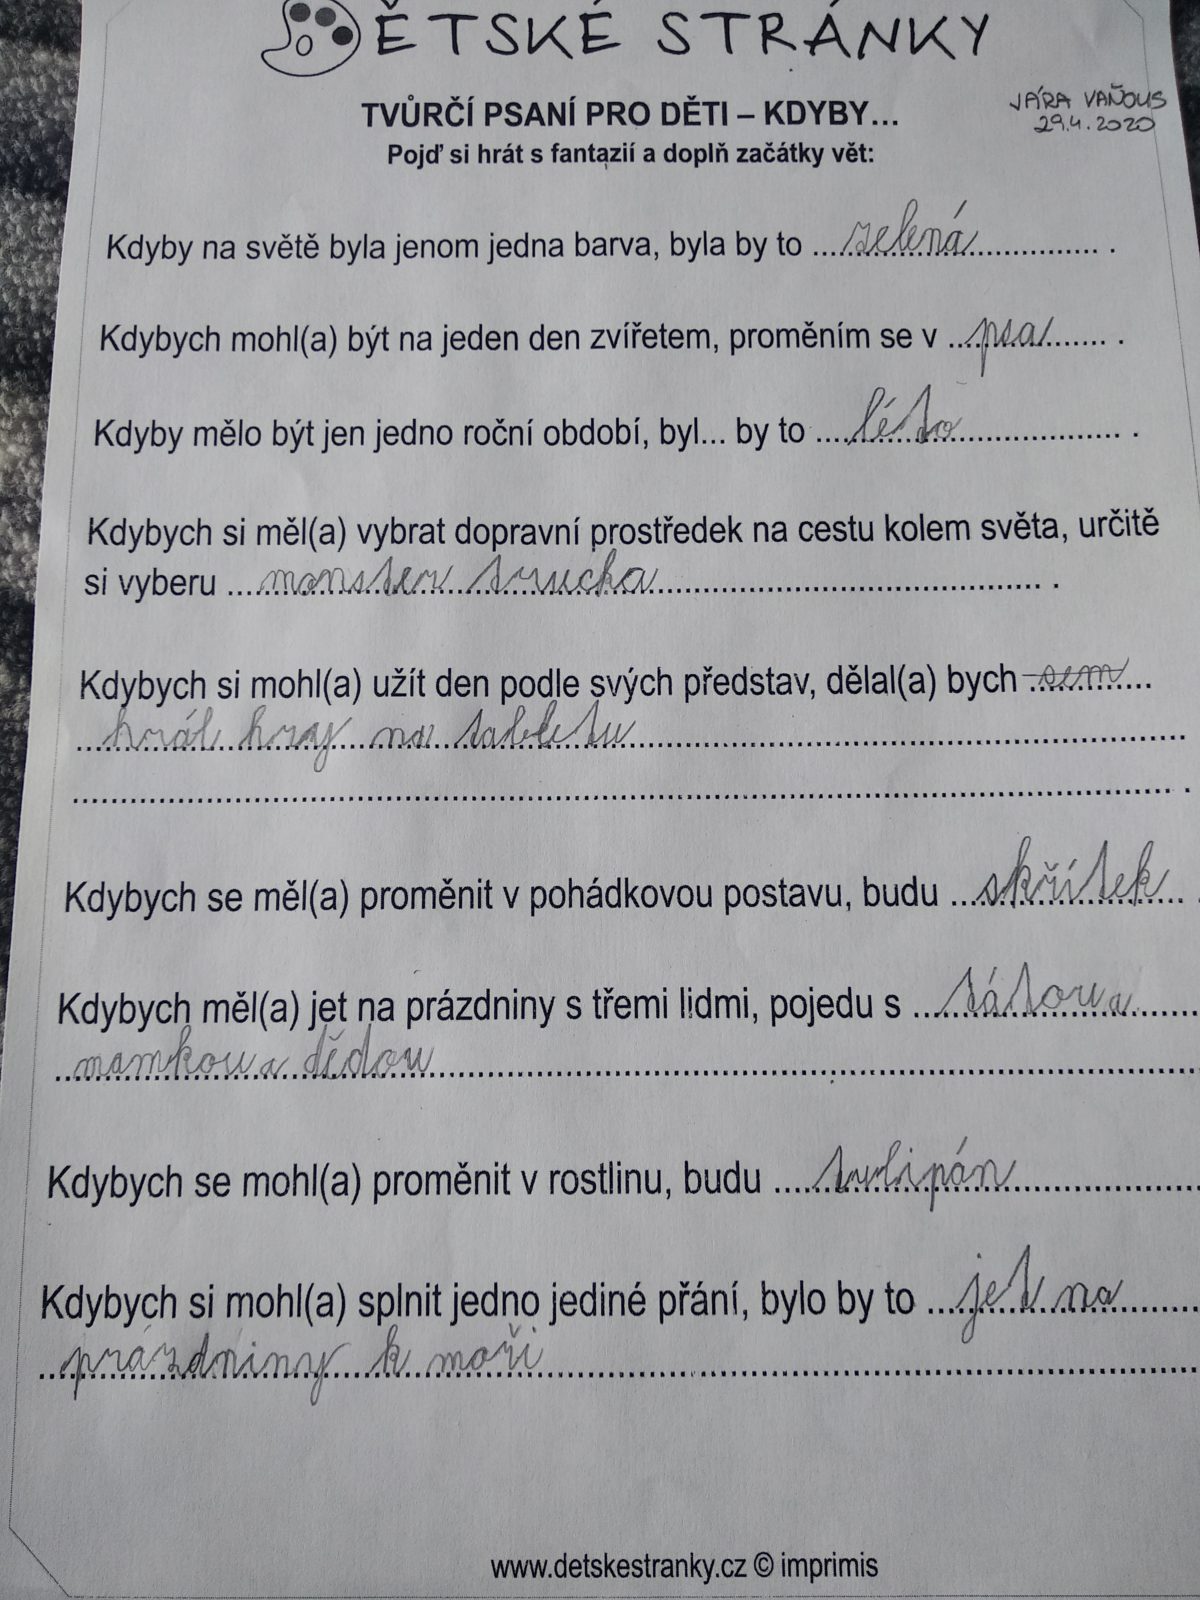 DĚTSKÉ STRÁNKY
TVŮRČÍ PSANÍ PRO DĚTI – KDYBY...
JÁRA VAŇOUS
29.4.2020
Pojď si hrát s fantazií a doplň začátky vět:
Kdyby na světě byla jenom jedna barva, byla by to zelená .
Kdybych mohl(a) být na jeden den zvířetem, proměním se v psa .
Kdyby mělo být jen jedno roční období, byl... by to léto .
Kdybych si měl(a) vybrat dopravní prostředek na cestu kolem světa, určitě
si vyberu monster trucka .
Kdybych si mohl(a) užít den podle svých představ, dělal(a) bych sem
hrál hry na tabletu
.
Kdybych se měl(a) proměnit v pohádkovou postavu, budu skřítek .
Kdybych měl(a) jet na prázdniny s třemi lidmi, pojedu s tátou a
mamkou a dědou
Kdybych se mohl(a) proměnit v rostlinu, budu tulipán
Kdybych si mohl(a) splnit jedno jediné přání, bylo by to jet na
prázdniny k moři
www.detskestranky.cz © imprimis